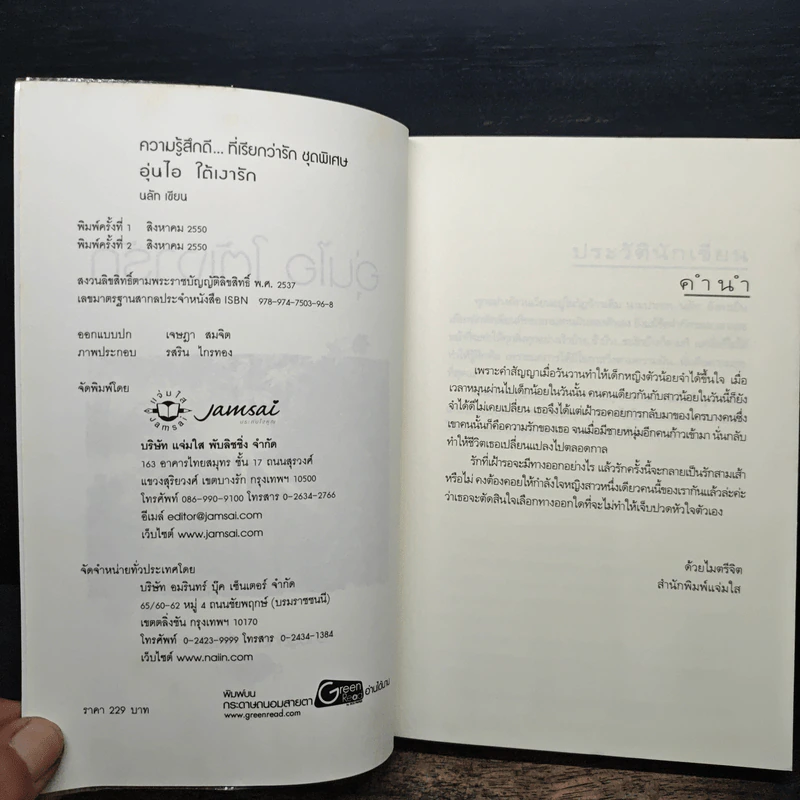 ความรู้สึกดี... ที่เรียกว่ารัก ชุดพิเศษ
อุ่นไอ ใต้เงารัก
นลัท เขียน
พิมพ์ครั้งที่ 1 สิงหาคม 2550
พิมพ์ครั้งที่ 2 สิงหาคม 2550
สงวนลิขสิทธิ์ตามพระราชบัญญัติลิขสิทธิ์ พ.ศ. 2537
เลขมาตรฐานสากลประจำหนังสือ ISBN 978-974-7503-96-8
ออกแบบปก เจษฎา สมจิต
ภาพประกอบ รสริน ไกรทอง
จัดพิมพ์โดย
แจ่มใส
Jamsai
Jamsai
บริษัท แจ่มใส พับลิชชิ่ง จำกัด
163 อาคารไทยสมุทร ชั้น 17 ถนนสุรวงศ์
แขวงสุริยวงศ์ เขตบางรัก กรุงเทพฯ 10500
โทรศัพท์ 086-990-9100 โทรสาร 0-2634-2766
อีเมล์ editor@jamsai.com
เว็บไซต์ www.jamsai.com
จัดจำหน่ายทั่วประเทศโดย
บริษัท อมรินทร์ บุ๊ค เซ็นเตอร์ จำกัด
65/60-62 หมู่ 4 ถนนชัยพฤกษ์ (บรมราชชนนี)
เขตตลิ่งชัน กรุงเทพฯ 10170
โทรศัพท์ 0-2423-9999 โทรสาร 0-2434-1384
เว็บไซต์ www.naiin.com
ราคา 229 บาท
พิมพ์บน
กระดาษถนอมสายตา
www.greenread.com
Green
Read
อ่านได้นาน
ประวัตินักเขียน
คำนำ
เพราะคำสัญญาเมื่อวันวานทำให้เด็กหญิงตัวน้อยจำได้ขึ้นใจ เมื่อ
เวลาหมุนผ่านไปเด็กน้อยในวันนั้น คนคนเดียวกันกับสาวน้อยในวันนี้ก็ยัง
จำได้ดีไม่เคยเปลี่ยน เธอจึงได้แต่เฝ้ารอคอยการกลับมาของใครบางคนซึ่ง
เขาคนนั้นก็คือความรักของเธอ จนเมื่อมีชายหนุ่มอีกคนก้าวเข้ามา นั่นกลับ
ทำให้ชีวิตเธอเปลี่ยนแปลงไปตลอดกาล
รักที่เฝ้ารอจะมีทางออกอย่างไร แล้วรักครั้งนี้จะกลายเป็นรักสามเส้า
หรือไม่ คงต้องคอยให้กำลังใจหญิงสาวหนึ่งเดียวคนนี้ของเรากันแล้วล่ะค่ะ
ว่าเธอจะตัดสินใจเลือกทางออกใดที่จะไม่ทำให้เจ็บปวดหัวใจตัวเอง
ด้วยไมตรีจิต
สำนักพิมพ์แจ่มใส